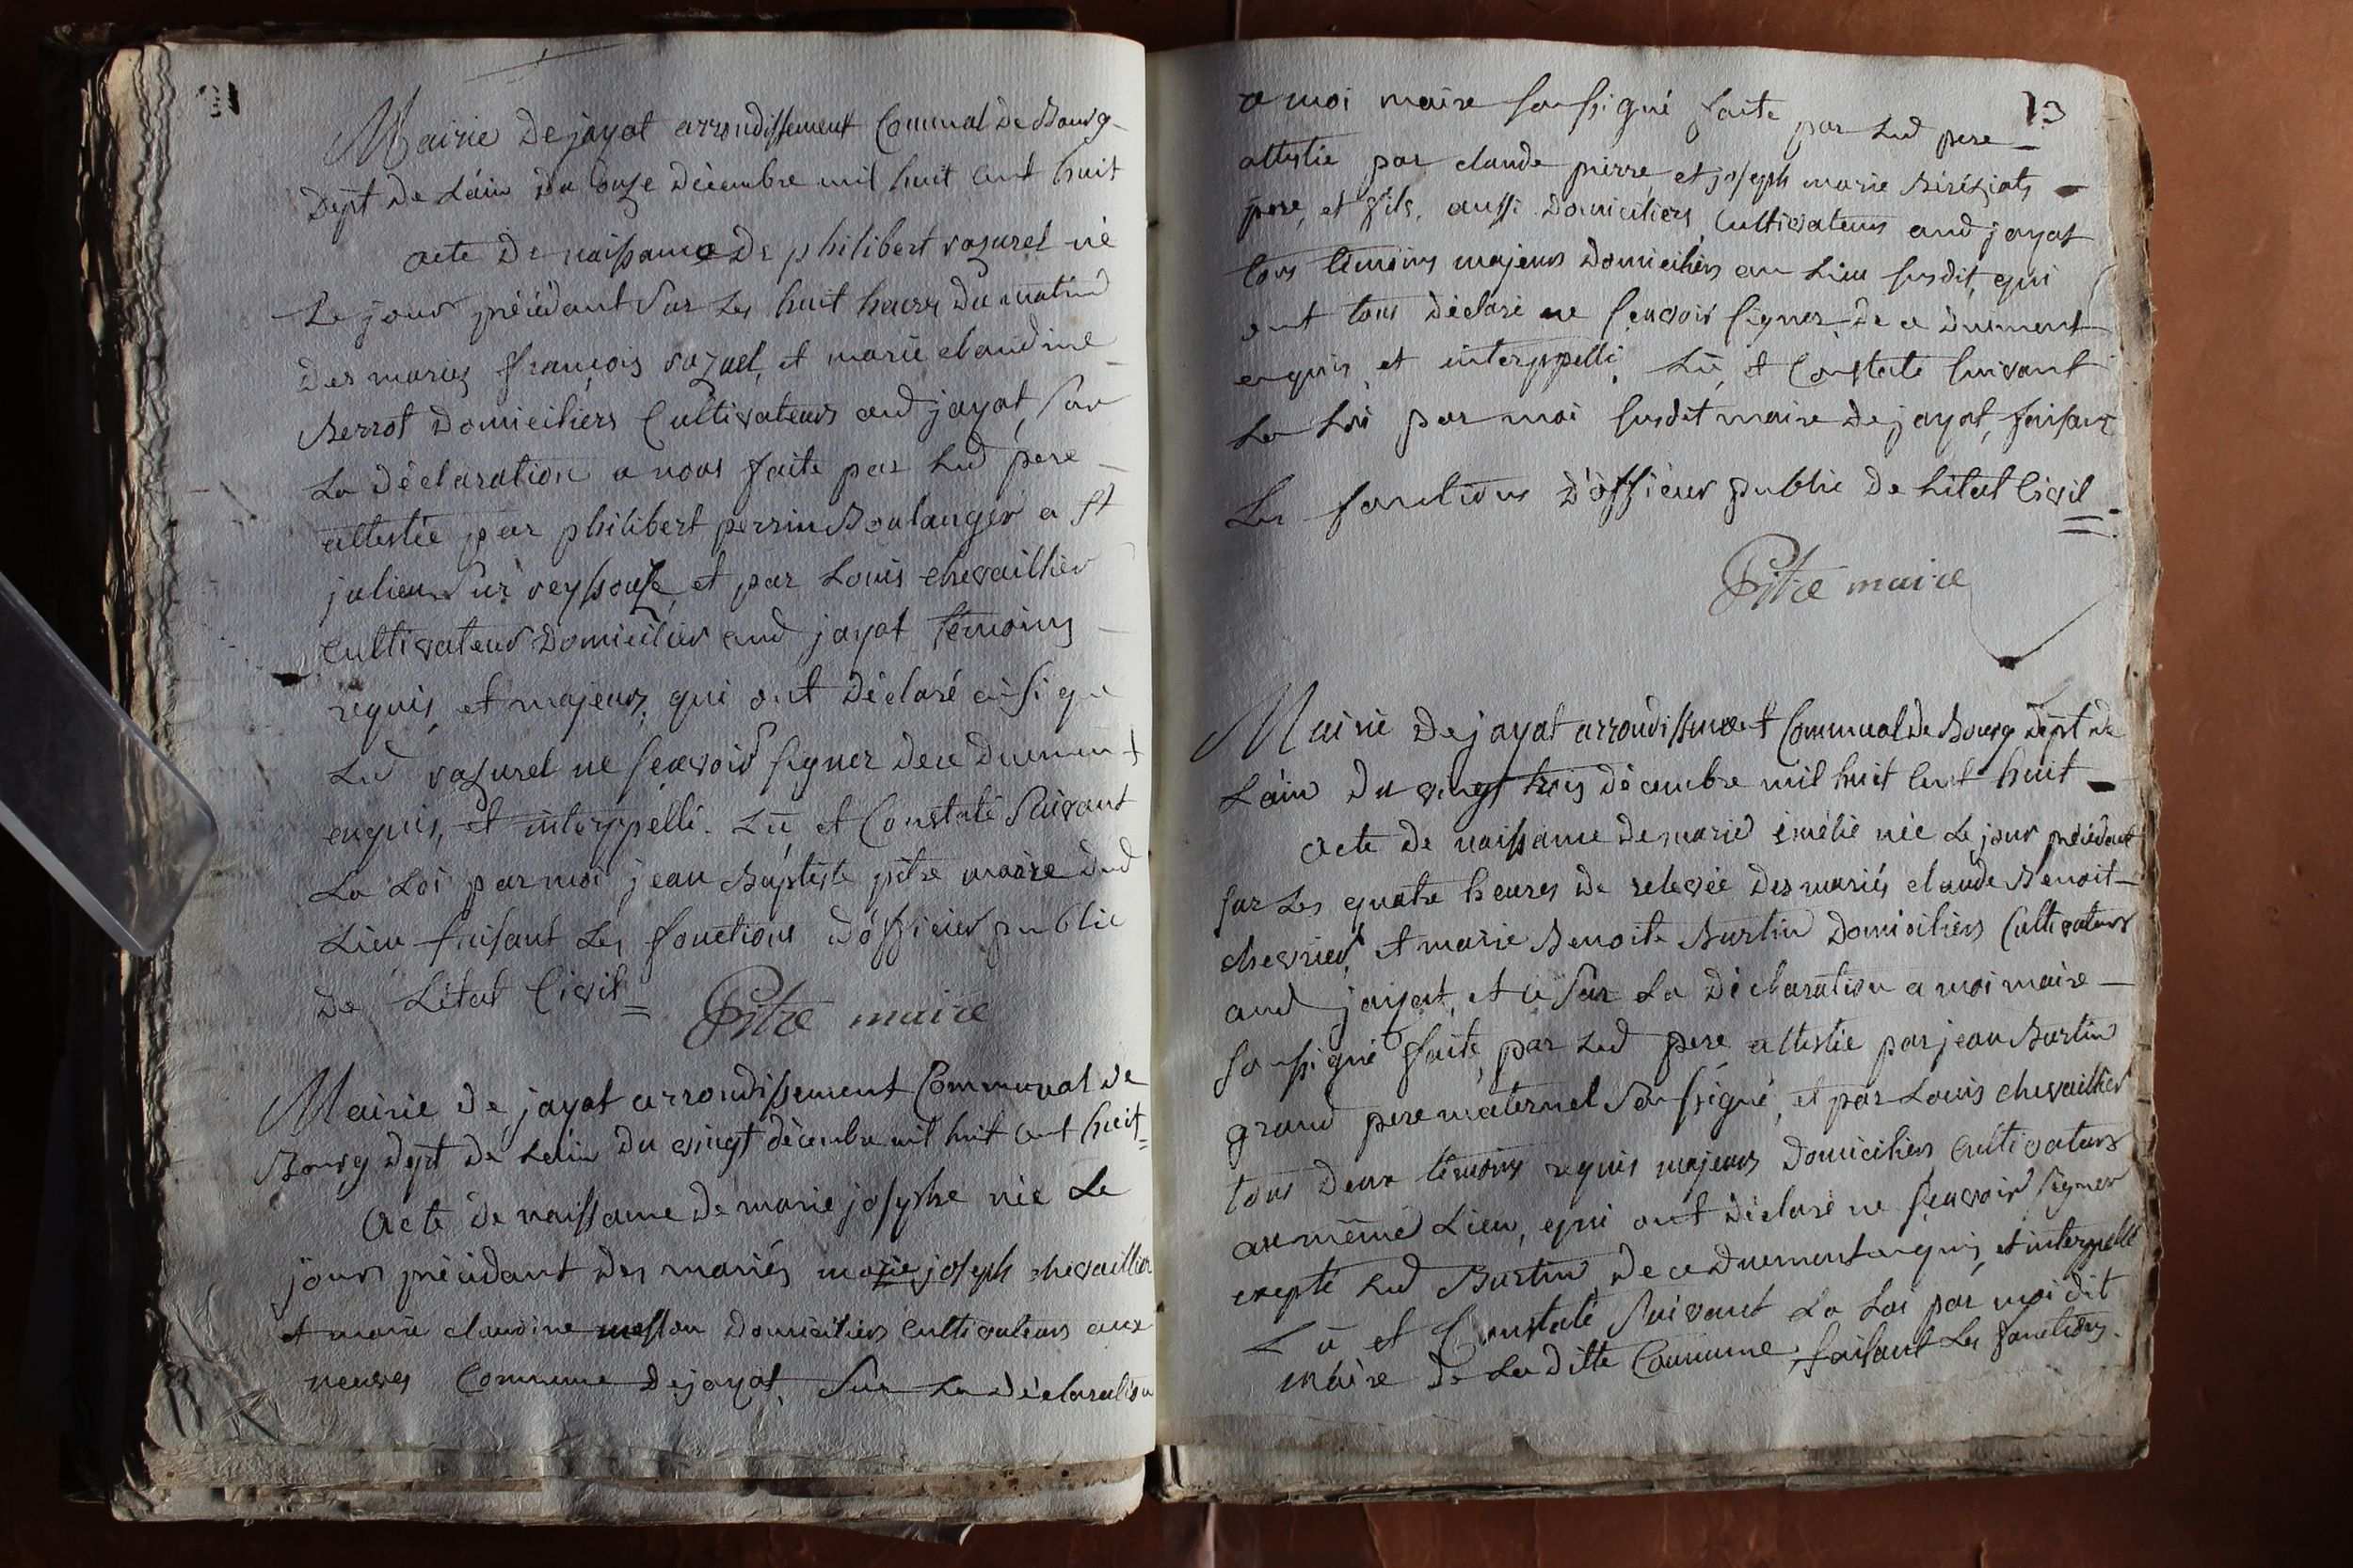 Mairie De jayat arrondissement Communal De Bourg
Dept De L'ain du onze décembre mil huit cent huit
acte De naissance De philibert vazurel né
Le jour précédant Sur Les huit heures Du matin
Des mariés françois vazuel, et marie claudine
Berrot Domiciliers Cultivateurs aud jayat, Sur
La Déclaration a nous faite par Led pere
attestée par philibert perrin Boulanger a St
julien Sur reyssouze, et par Louis chevaillier
cultivateur Domicilier aud jayat témoins
requis, et majeurs, qui ont Déclaré ainsi que
Led vazurel ne sçavoir signer De ce Duement
enquis, et interppellé. Lû et Constaté Suivant
La Loi par moi jean Baptiste pitre maire dud
Lieu faisant Les fonctions d'officier public
De L'état Civil =
Pitre maire
Mairie De jayat arrondissement Communal de
Bourg Dept De L'ain Du vingt décembre mil huit cent huit =
Acte De naissance De marie josephe née Le
jour précédant Des mariés marie joseph chevaillier
et marie claudine messon Domiciliers cultivateurs aux
neuves Commune De jayat, Sur La déclaration
13
a moi maire soussigné faite par Led pere
attestée par claude pierre et joseph marie Béréziat
pere, et fils, aussi Domiciliers, Cultivateurs aud jayat
tous témoins majeurs Domiciliers au Lieu susdit, qui
ont tous déclaré ne sçavoir signer De ce Duement
enquis, et interppellé Lû, et Constaté suivant
La Loi par moi susdit maire De jayat, faisant
Les fonctions d'officier public De L'état Civil =
Pitre maire
Mairie De jayat arrondissement Communal De Bourg Dept De
L'ain Du vingt trois décembre mil huit cent huit
Acte De naissance De marie émélie née Le jour précédant
sur Les quatre heures De relevée Des mariés claude Benoit
chevrier, et marie Benoite Burtin Domiciliers Cultivateurs
aud jayat, et ce Sur La Déclaration a moi maire
soussigné faite, par Led pere attestée par jean Burtin
grand pere maternel Soussigné, et par Louis chevaillier
tous Deux témoins requis majeurs Domiciliers cultivateurs
au même Lieu, qui ont déclaré ne sçavoir signer
excepté Led Burtin De ce duement enquis, et interpellé
Lû et Constaté Suivant La Loi par moi dit
maire De La ditte Commune faisant Les fonctions